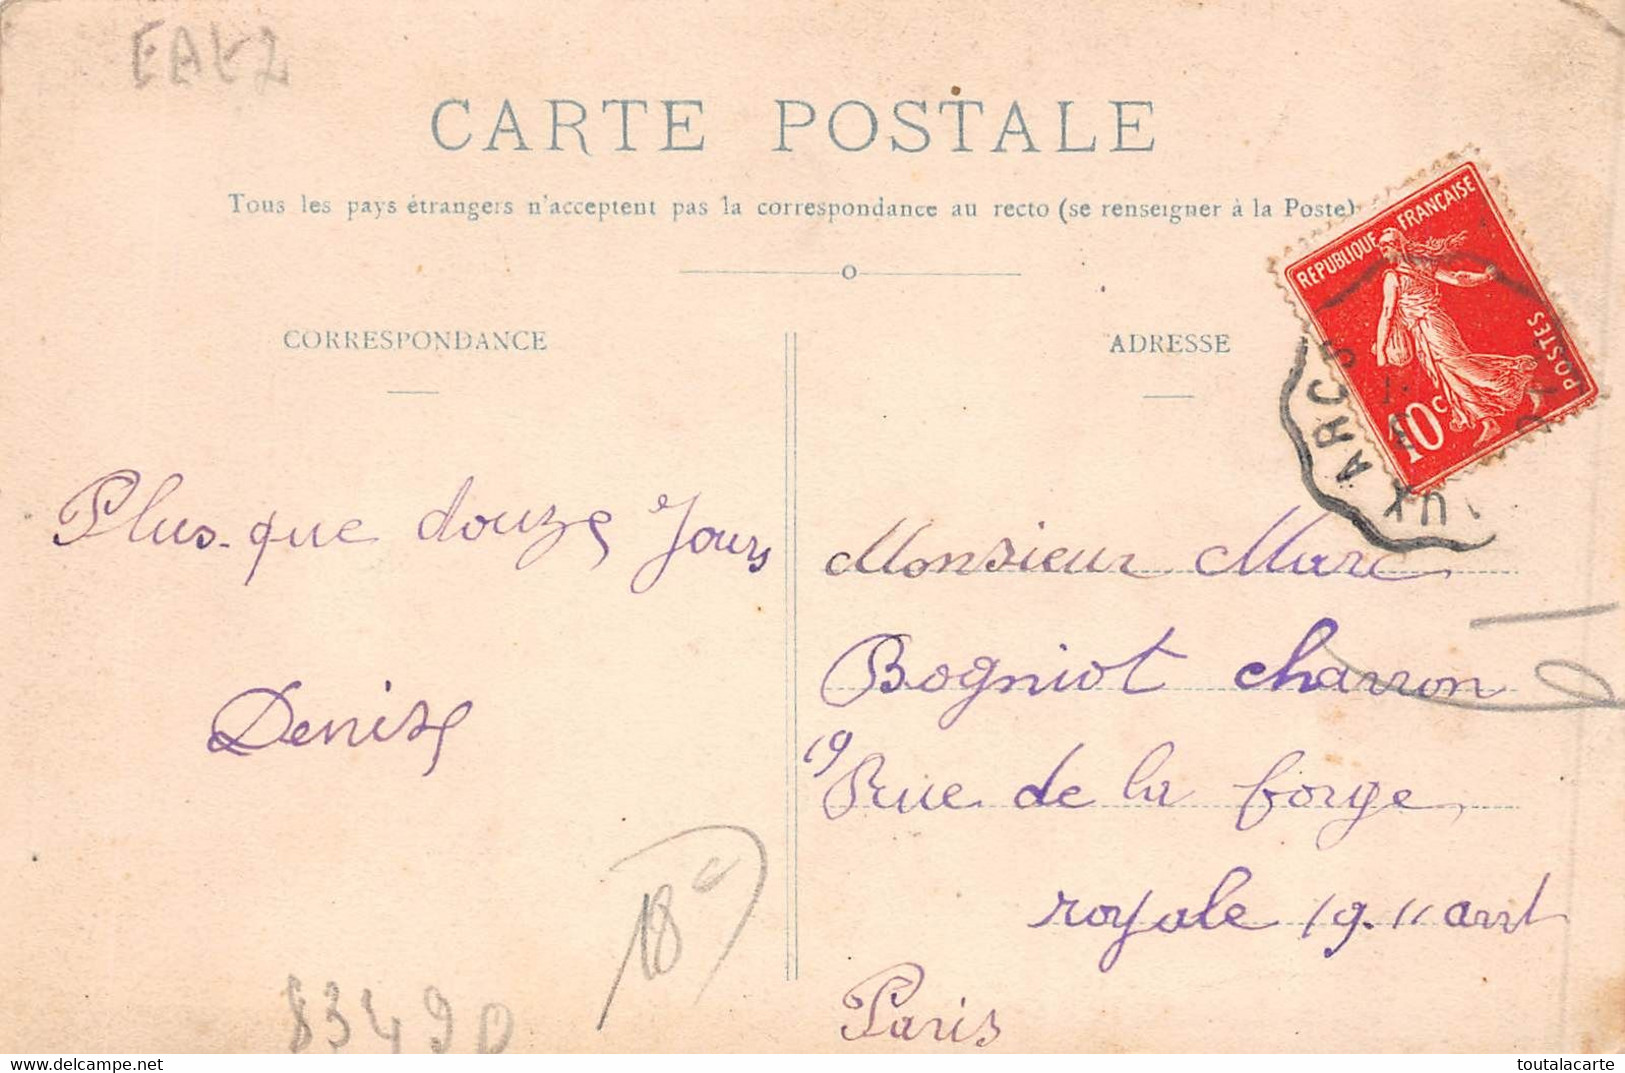 EAL2
CARTE POSTALE
Tous les pays étrangers n'acceptent pas la correspondance au recto (se renseigner à la Poste)
CORRESPONDANCE
ADRESSE
RÉPUBLIQUE FRANÇAISE
POSTES
10c
ARCS
Plus-que douze Jours
Denise
Monsieur Marc
Bogniot charron
19 Rue de la forge
royale 19. 11 arrt
Paris
18
83490
www.delcampe.net
toutalacarte